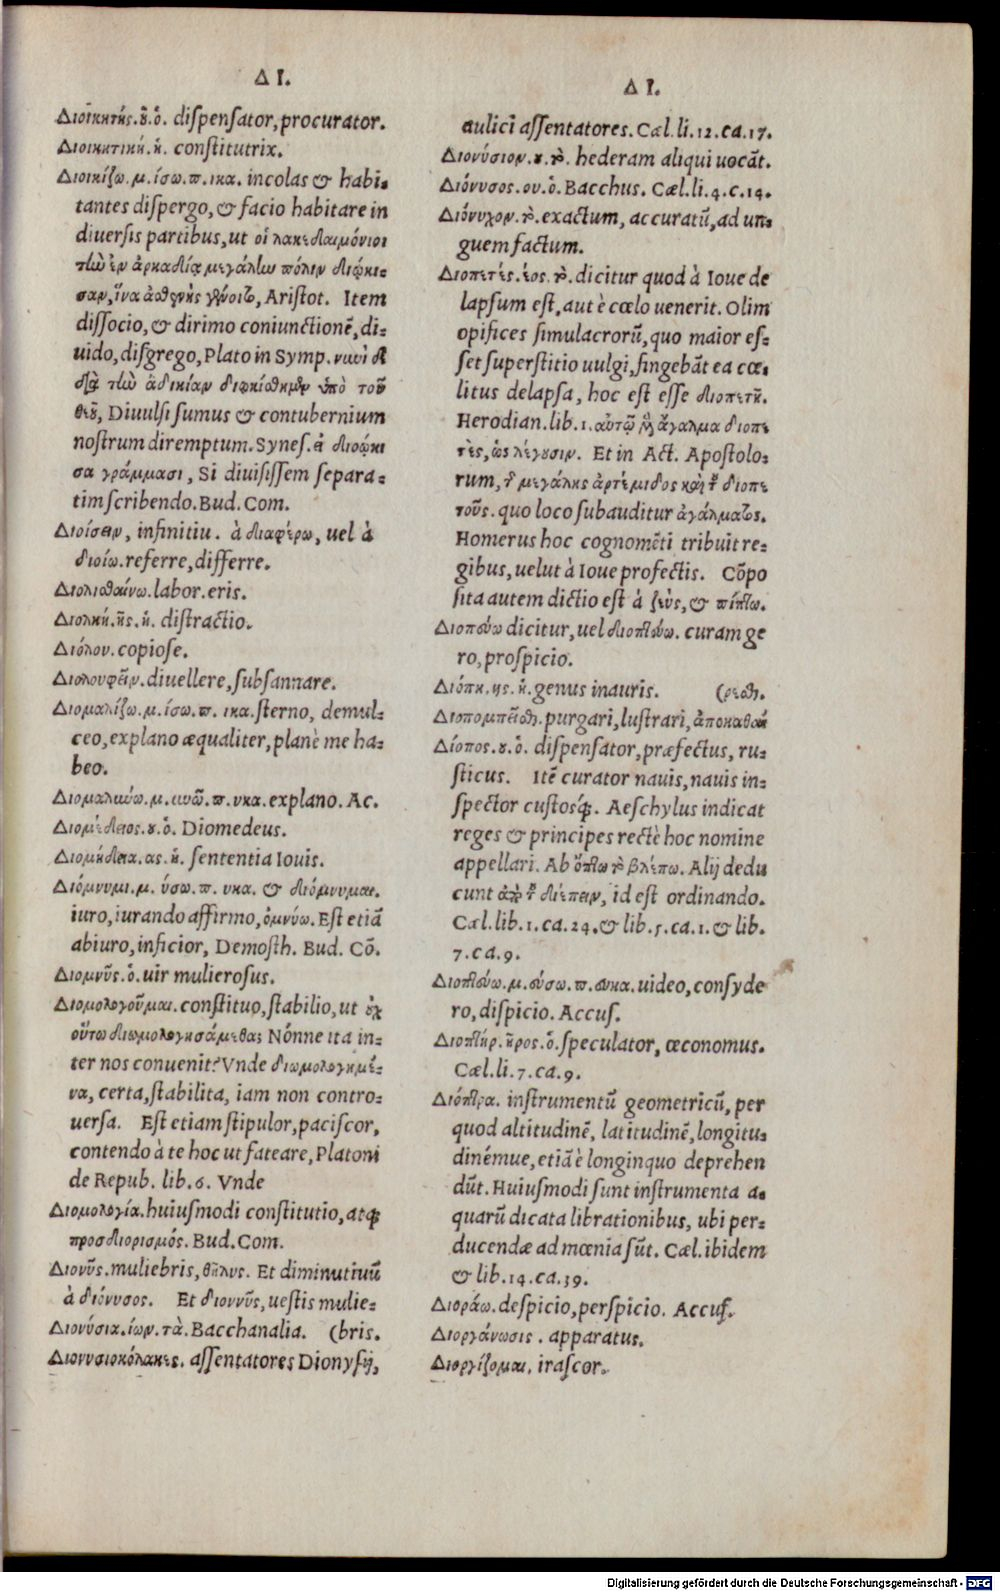 Δ Ι.
Διοικητής.ȣ̃.ὁ. dispensator, procurator.
Διοικητική.ἡ. constitutrix.
Διοικίζω.μ.ίσω.π.ικα. incolas & habi-
tantes dispergo, & facio habitare in
diuersis partibus, ut οἱ λακεδαιμόνιοι
τὴν ἐν ἀρκαδίᾳ μεγάλην πόλιν διῴκι-
σαν, ἵνα ἀσθενὴς γένοιτο, Aristot. Item
dissocio, & dirimo coniunctionē, di-
uido, disgrego, Plato in Symp. νυνὶ δὲ
διὰ τὴν ἀδικίαν διῳκίσθημεν ὑπὸ τοῦ
θεȣ̃, Diuulsi sumus & contubernium
nostrum diremptum. Synes. εἰ διοῴκι
σα γράμμασι, Si diuisissem separa-
tim scribendo. Bud. Com.
Διοίσειν, infinitiu. à διαφέρω, uel à
διοίω. referre, differre.
Διολισθαίνω. labor. eris.
Διολκή.ῆς.ἡ. distractio.
Διόλου. copiose.
Διολουφεῖν. diuellere, subsannare.
Διομαλίζω.μ.ίσω.π.ικα. sterno, demul-
ceo, explano æqualiter, planè me ha-
beo.
Διομαλύνω.μ.υνῶ.π.υκα. explano. Ac.
Διομήδειος.ȣ.ὁ. Diomedeus.
Διομήδεια.ας.ἡ. sententia Iouis.
Διόμνυμι.μ.ύσω.π.υκα. & διόμνυμαι.
iuro, iurando affirmo, ὀμνύω. Est etiā
abiuro, inficior, Demosth. Bud. Cō.
Διομνῦς.ὁ. uir mulierosus.
Διομολογοῦμαι. constituo, stabilio, ut ȣ̓χ
οὕτω διωμολογησάμεθα; Nónne ita in-
ter nos conuenit? Vnde διωμολογημέ-
να, certa, stabilita, iam non contro-
uersa. Est etiam stipulor, paciscor,
contendo à te hoc ut fateare, Platoni
de Repub. lib. 6. Vnde
Διομολογία. huiusmodi constitutio, atq́;
προσδιορισμός. Bud. Com.
Διονῦς. muliebris, θῆλυς. Et diminutiuū
à διόνυσος. Et διοννῦς, uestis mulie-
Διονύσια.ίων.τὰ. Bacchanalia. (bris.
Διονυσιοκόλακες. assentatores Dionysij,
Δ Ι.
aulici assentatores. Cæl. li. 12. ca. 17.
Διονύσιον.ȣ.τὸ. hederam aliqui uocāt.
Διόνυσος.ου.ὁ. Bacchus. Cæl. li. 4. c. 14.
Διόνυχον.τὸ. exactum, accuratū, ad un-
guem factum.
Διοπετές.έος.τὸ. dicitur quod à Ioue de
lapsum est, aut è cœlo uenerit. Olim
opifices simulacrorū, quo maior es-
set superstitio uulgi, fingebāt ea cœ-
litus delapsa, hoc est esse διοπετῆ.
Herodian. lib. 1. αὐτῷ μὲν ἄγαλμα διοπε
τὲς, ὡς λέγȣσιν. Et in Act. Apostolo-
rum, τῆς μεγάλης ἀρτέμιδος καὶ τοῦ διοπε
τοῦς. quo loco subauditur ἀγάλματος.
Homerus hoc cognomēti tribuit re-
gibus, uelut à Ioue profectis. Cōpo
sita autem dictio est à ζεύς, & πίπτω.
Διοπεύω dicitur, uel διοπτεύω. curam ge
ro, prospicio.
Διόπη.ης.ἡ. genus inauris. (ρεσθ.
Διοπομπεῖσθ. purgari, lustrari, ἀποκαθαί
Δίοπος.ȣ.ὁ. dispensator, præfectus, ru-
sticus. Itē curator nauis, nauis in-
spector custosq́;. Aeschylus indicat
reges & principes rectè hoc nomine
appellari. Ab ὄπτω τὸ βλέπω. Alij dedu
cunt ἀπὸ τοῦ διέπειν, id est ordinando.
Cæl. lib. 1. ca. 24. & lib. 5. ca. 1. & lib.
7. ca. 9.
Διοπτεύω.μ.εύσω.π.ευκα. uideo, consyde
ro, dispicio. Accus.
Διοπτήρ.ῆρος.ὁ. speculator, œconomus.
Cæl. li. 7. ca. 9.
Διόπτρα. instrumentū geometricū, per
quod altitudinē, latitudinē, longitu-
dinémue, etiā è longinquo deprehen
dūt. Huiusmodi sunt instrumenta a-
quarū dicata librationibus, ubi per-
ducendæ ad mœnia sūt. Cæl. ibidem
& lib. 14. ca. 39.
Διοράω. despicio, perspicio. Accus.
Διοργάνωσις. apparatus.
Διοργίζομαι. irascor.
Digitalisierung gefördert durch die Deutsche Forschungsgemeinschaft - DFG